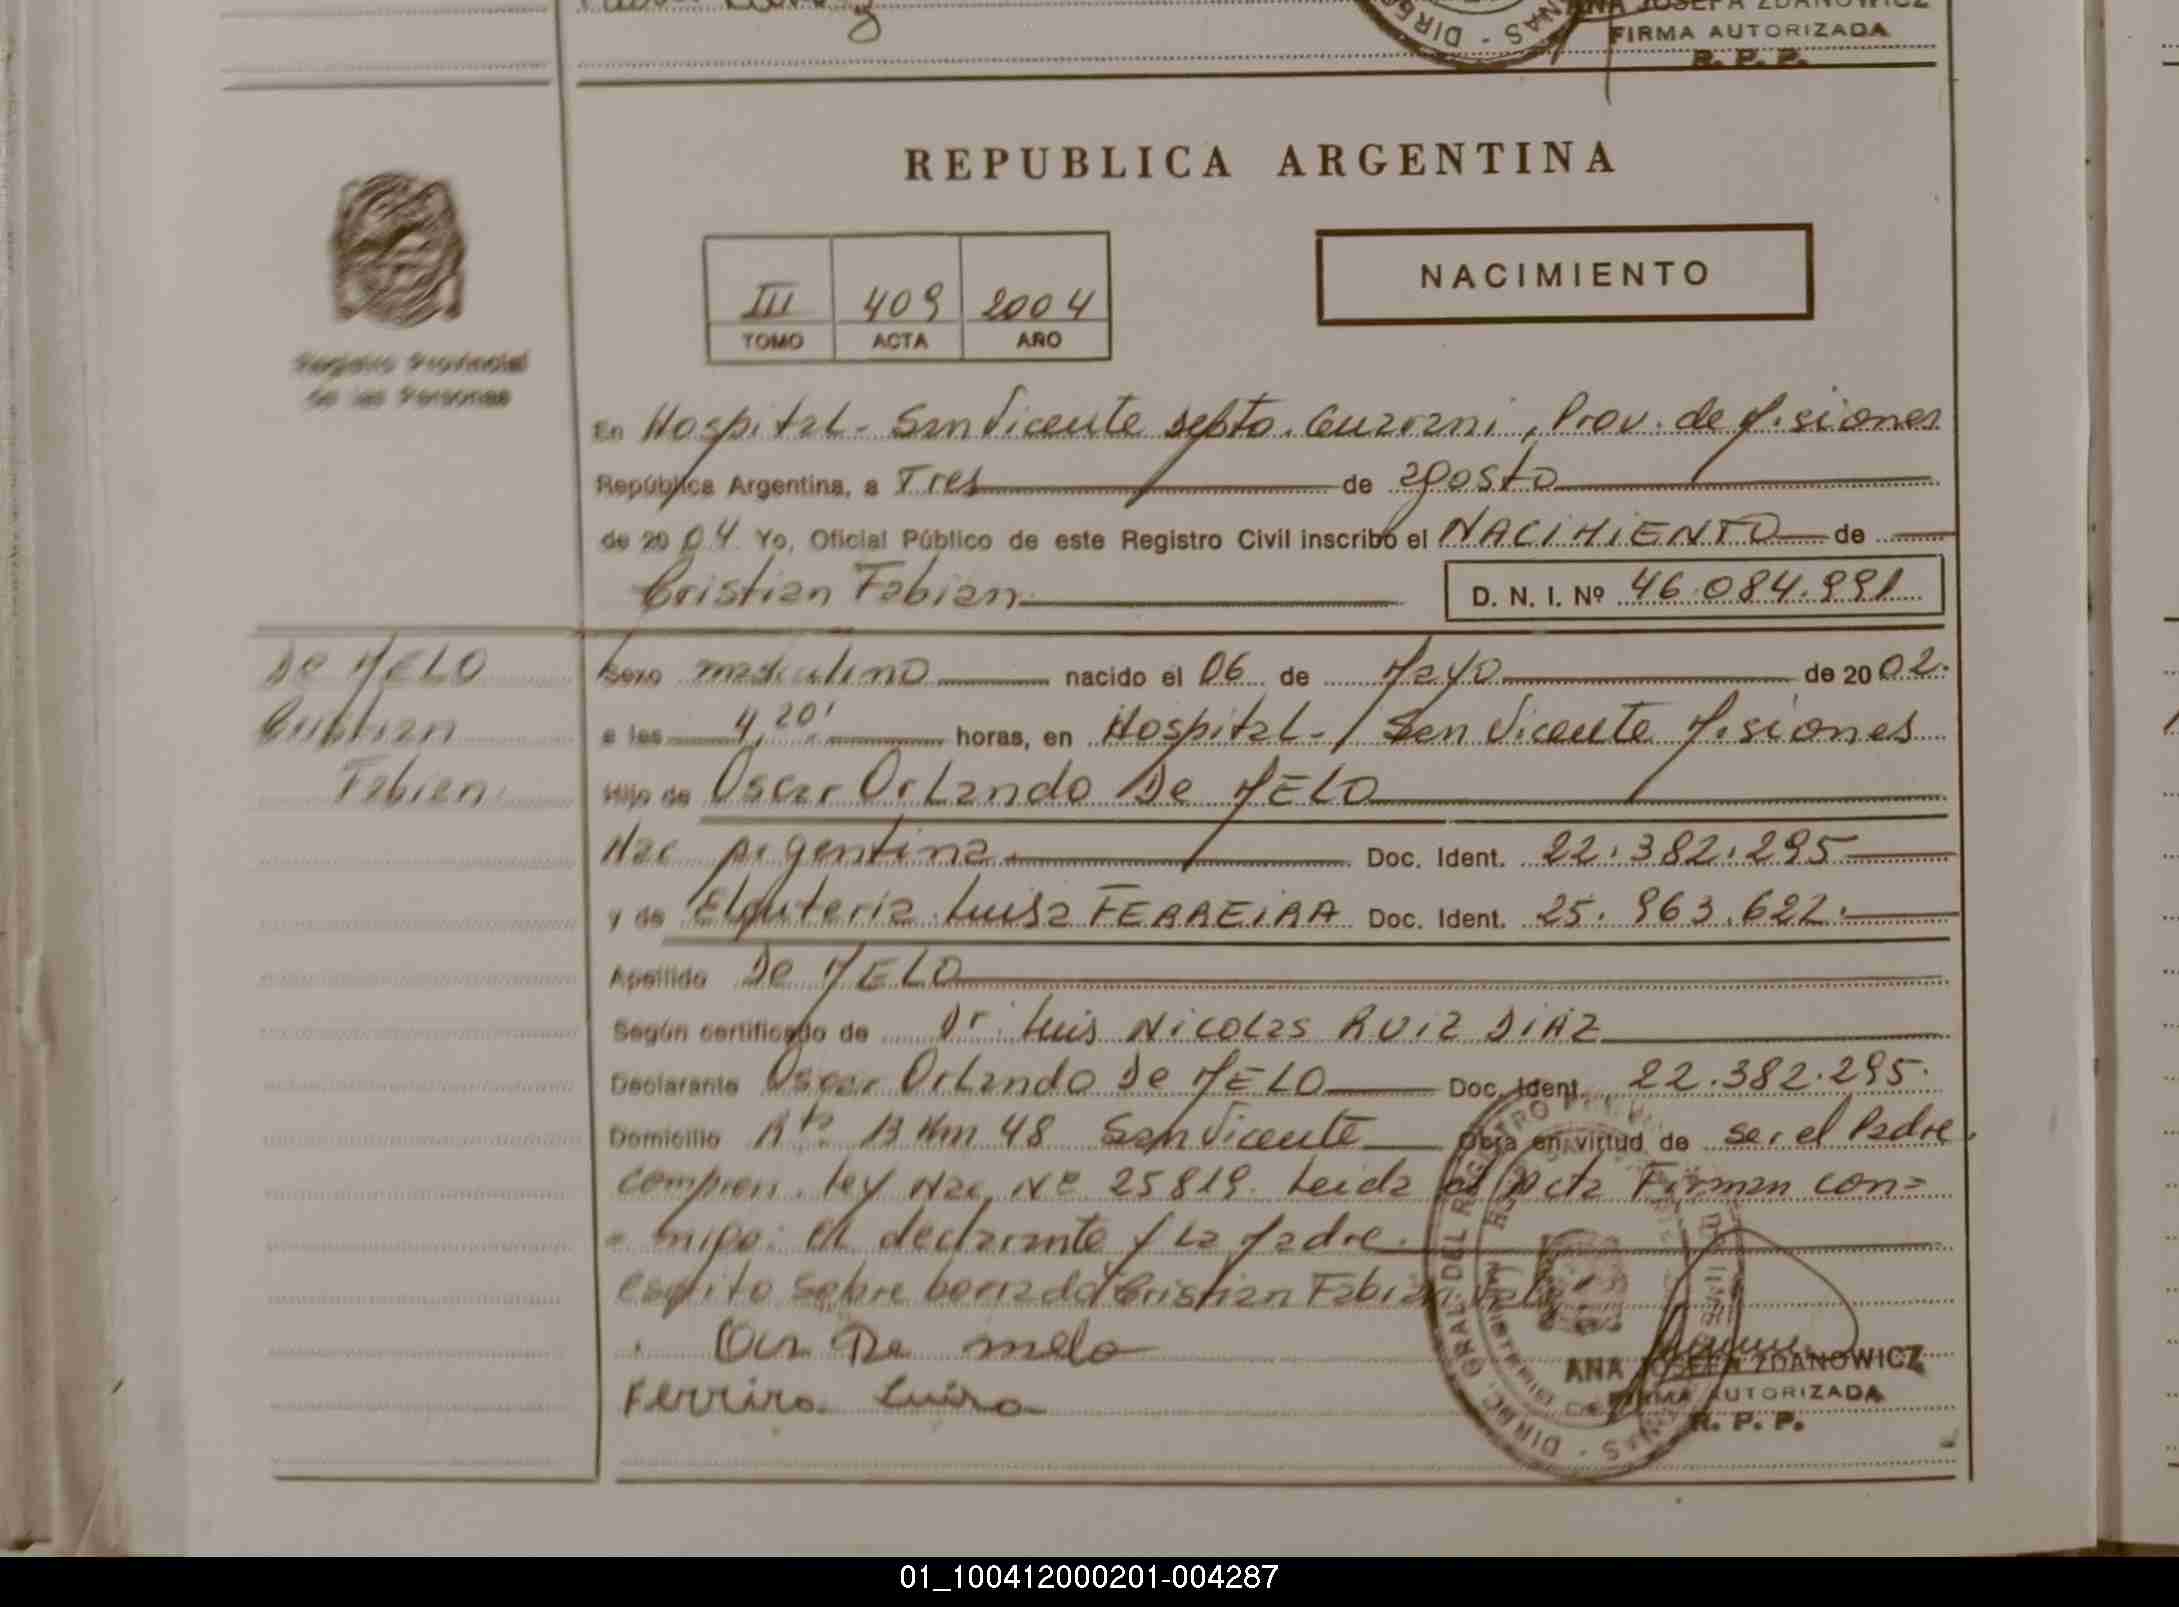 FIRMA AUTORIZADA
R. P. P.
REPUBLICA ARGENTINA
III 409 2004
TOMO ACTA AÑO
NACIMIENTO
Registro Provincial
de las Personas
En Hospital - San Vicente Depto. Guarani, Prov. de Misiones
República Argentina, a Tres de agosto
de 2004 Yo, Oficial Público de este Registro Civil inscribo el NACIMIENTO de
Cristian Fabian
D. N. I. Nº 46.084.991
De MELO
Cristian
Fabian
Sexo masculino nacido el 06 de Mayo de 2002.
a las 4,20' horas, en Hospital - San Vicente Misiones
Hijo de Oscar Orlando De MELO
Nac Argentina Doc. Ident. 22.382.295
y de Eleuteria Luisa FERREIRA Doc. Ident. 25.963.622.
Apellido De MELO
Según certificado de Dr. Luis Nicolas RUIZ DIAZ
Declarante Oscar Orlando De MELO Doc. Ident. 22.382.295.
Domicilio Rta 13 Km 48 San Vicente Obra en virtud de ser el Padre.
compren. Ley Nac. Nº 25819. Leida el Acta Firman con=
= migo: el declarante y La Madre.
escrito sobre borrado Cristian Fabian Vale
De melo
Ferreira Luisa
ANA JOSEFA ZDANOWICZ
FIRMA AUTORIZADA
R. P. P.
01_100412000201-004287